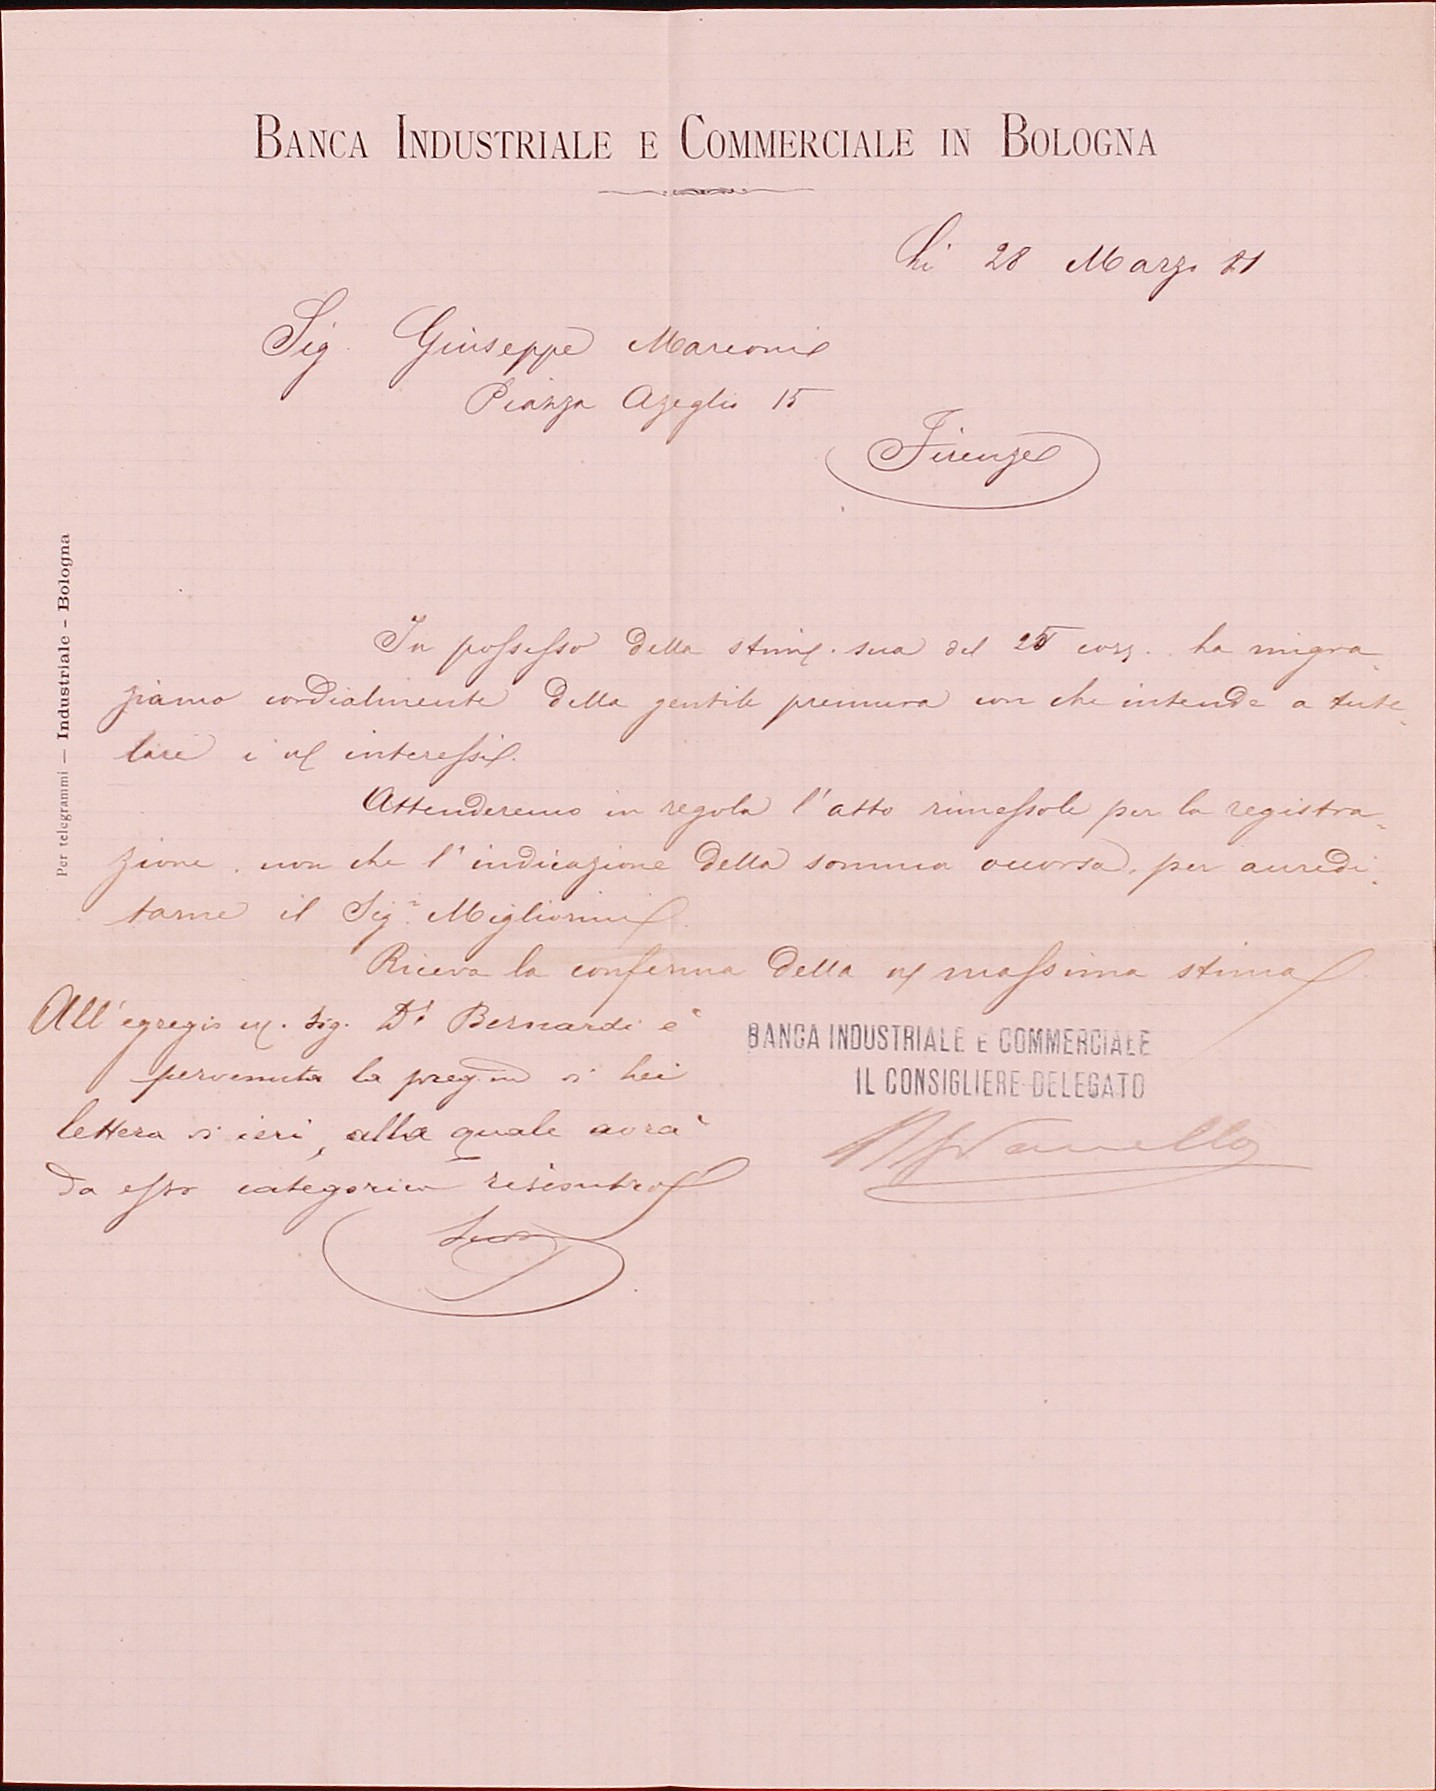 BANCA INDUSTRIALE E COMMERCIALE IN BOLOGNA
li 28 Marzo 81
Sig. Giuseppe Marcони
Piazza Azeglio 15
Firenze
Per telegrammi — Industriale - Bologna
In possesso della stim. sua del 25 corr. la ringra-
ziamo cordialmente della gentile premura con che intende a tute-
lare i ns interessi.
Attenderemo in regola l'atto rimessole per la registra-
zione, non che l'indicazione della somma occorsa, per accredi-
tarne il Sigr. Migliorini.
Riceva la conferma della ns massima stima
BANCA INDUSTRIALE E COMMERCIALE
IL CONSIGLIERE DELEGATO
All'egregio ns. Sig. Dr Bernardi è
pervenuta la preg. di Lei
lettera di ieri, alla quale avrà
da esso categorico riscontro